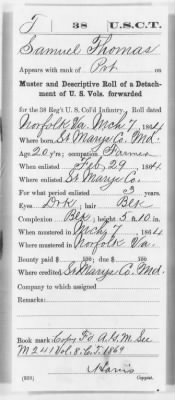 T | 38 | U.S.C.T.
Samuel Thomas
Appears with rank of Pvt on
Muster and Descriptive Roll of a Detach-
ment of U. S. Vols. forwarded
for the 38 Reg't U. S. Col'd Infantry. Roll dated
Norfolk Va. Mch 7, 1864
Where born St. Marys Co. Md.
Age 20 y'rs; occupation Farmer
When enlisted Feb. 29, 1864
Where enlisted St. Marys Co.
For what period enlisted 3 years.
Eyes Drk; hair Blk
Complexion Blk; height 5 ft. 10 in.
When mustered in Mch 7, 1864
Where mustered in Norfolk Va.
Bounty paid $ 100; due $ 100
Where credited St. Marys Co. Md.
Company to which assigned
Remarks:
Book mark: Copy Fd A.G.M. See
M 241 Vol. 8. C.T. 1869
Harris
Copyist.